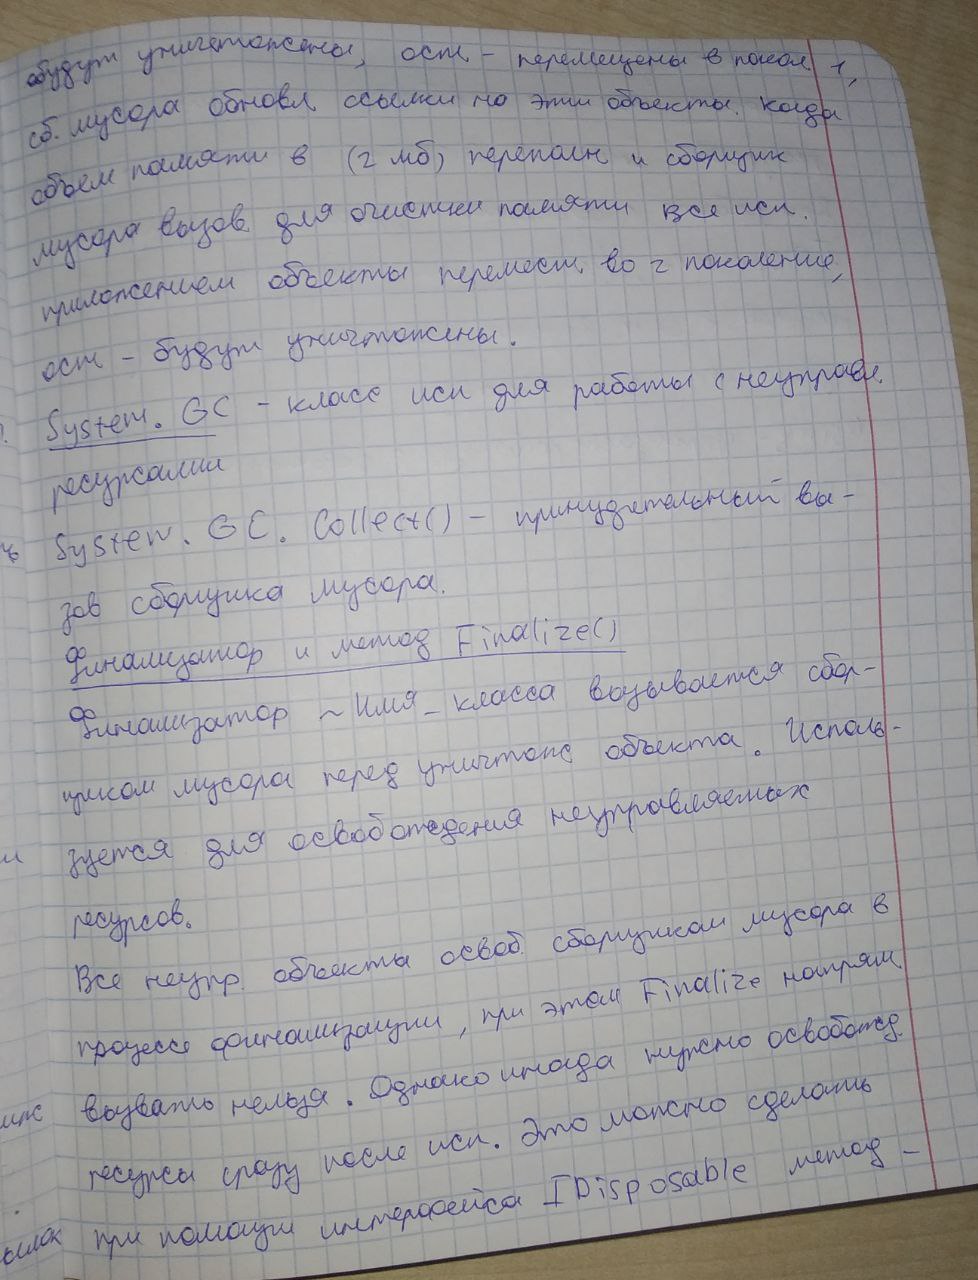 будут уничтожены, ост - перемещены в покол 1,
сб. мусора обновл. ссылки на эти объекты. Когда
объем памяти в (2 мб) переполн и сборщик
мусора вызов. для очистки памяти все исп.
приложением объекты перемест. во 2 поколение,
ост - будут уничтожены.
System. GC - класс исп для работы с неуправл.
ресурсами
System. GC. Collect() - принудительный вы-
зов сборщика мусора.
Финализатор и метод Finalize()
Финализатор ~ Имя_класса вызывается сбор-
щиком мусора перед уничтож объекта. Исполь-
зуется для освобождения неуправляемых
ресурсов.
Все неупр. объекты освоб. сборщиком мусора в
процессе финализации, при этом Finalize напрям.
вызвать нельзя. Однако иногда нужно освобожд.
ресурсы сразу после исп. Это можно сделать
при помощи интерфейса IDisposable метод -